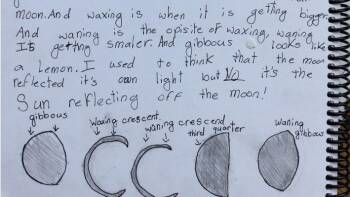 moon. And waxing is when it is getting bigger.
And waning is the opisite of waxing, waning
Is getting smaler. And gibbous looks like
a Lemon. I used to think that the moon
reflected it's own light but NO it's the
Sun reflecting off the moon!
gibbous waxing crescent waning crescend third quarter waning gibbous